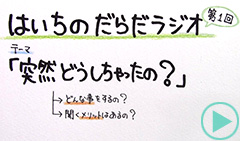 はいちのだらだラジオ
第1回
テーマ
「突然どうしちゃったの？」
↳どんな事をするの？
↳聞くメリットはあるの？